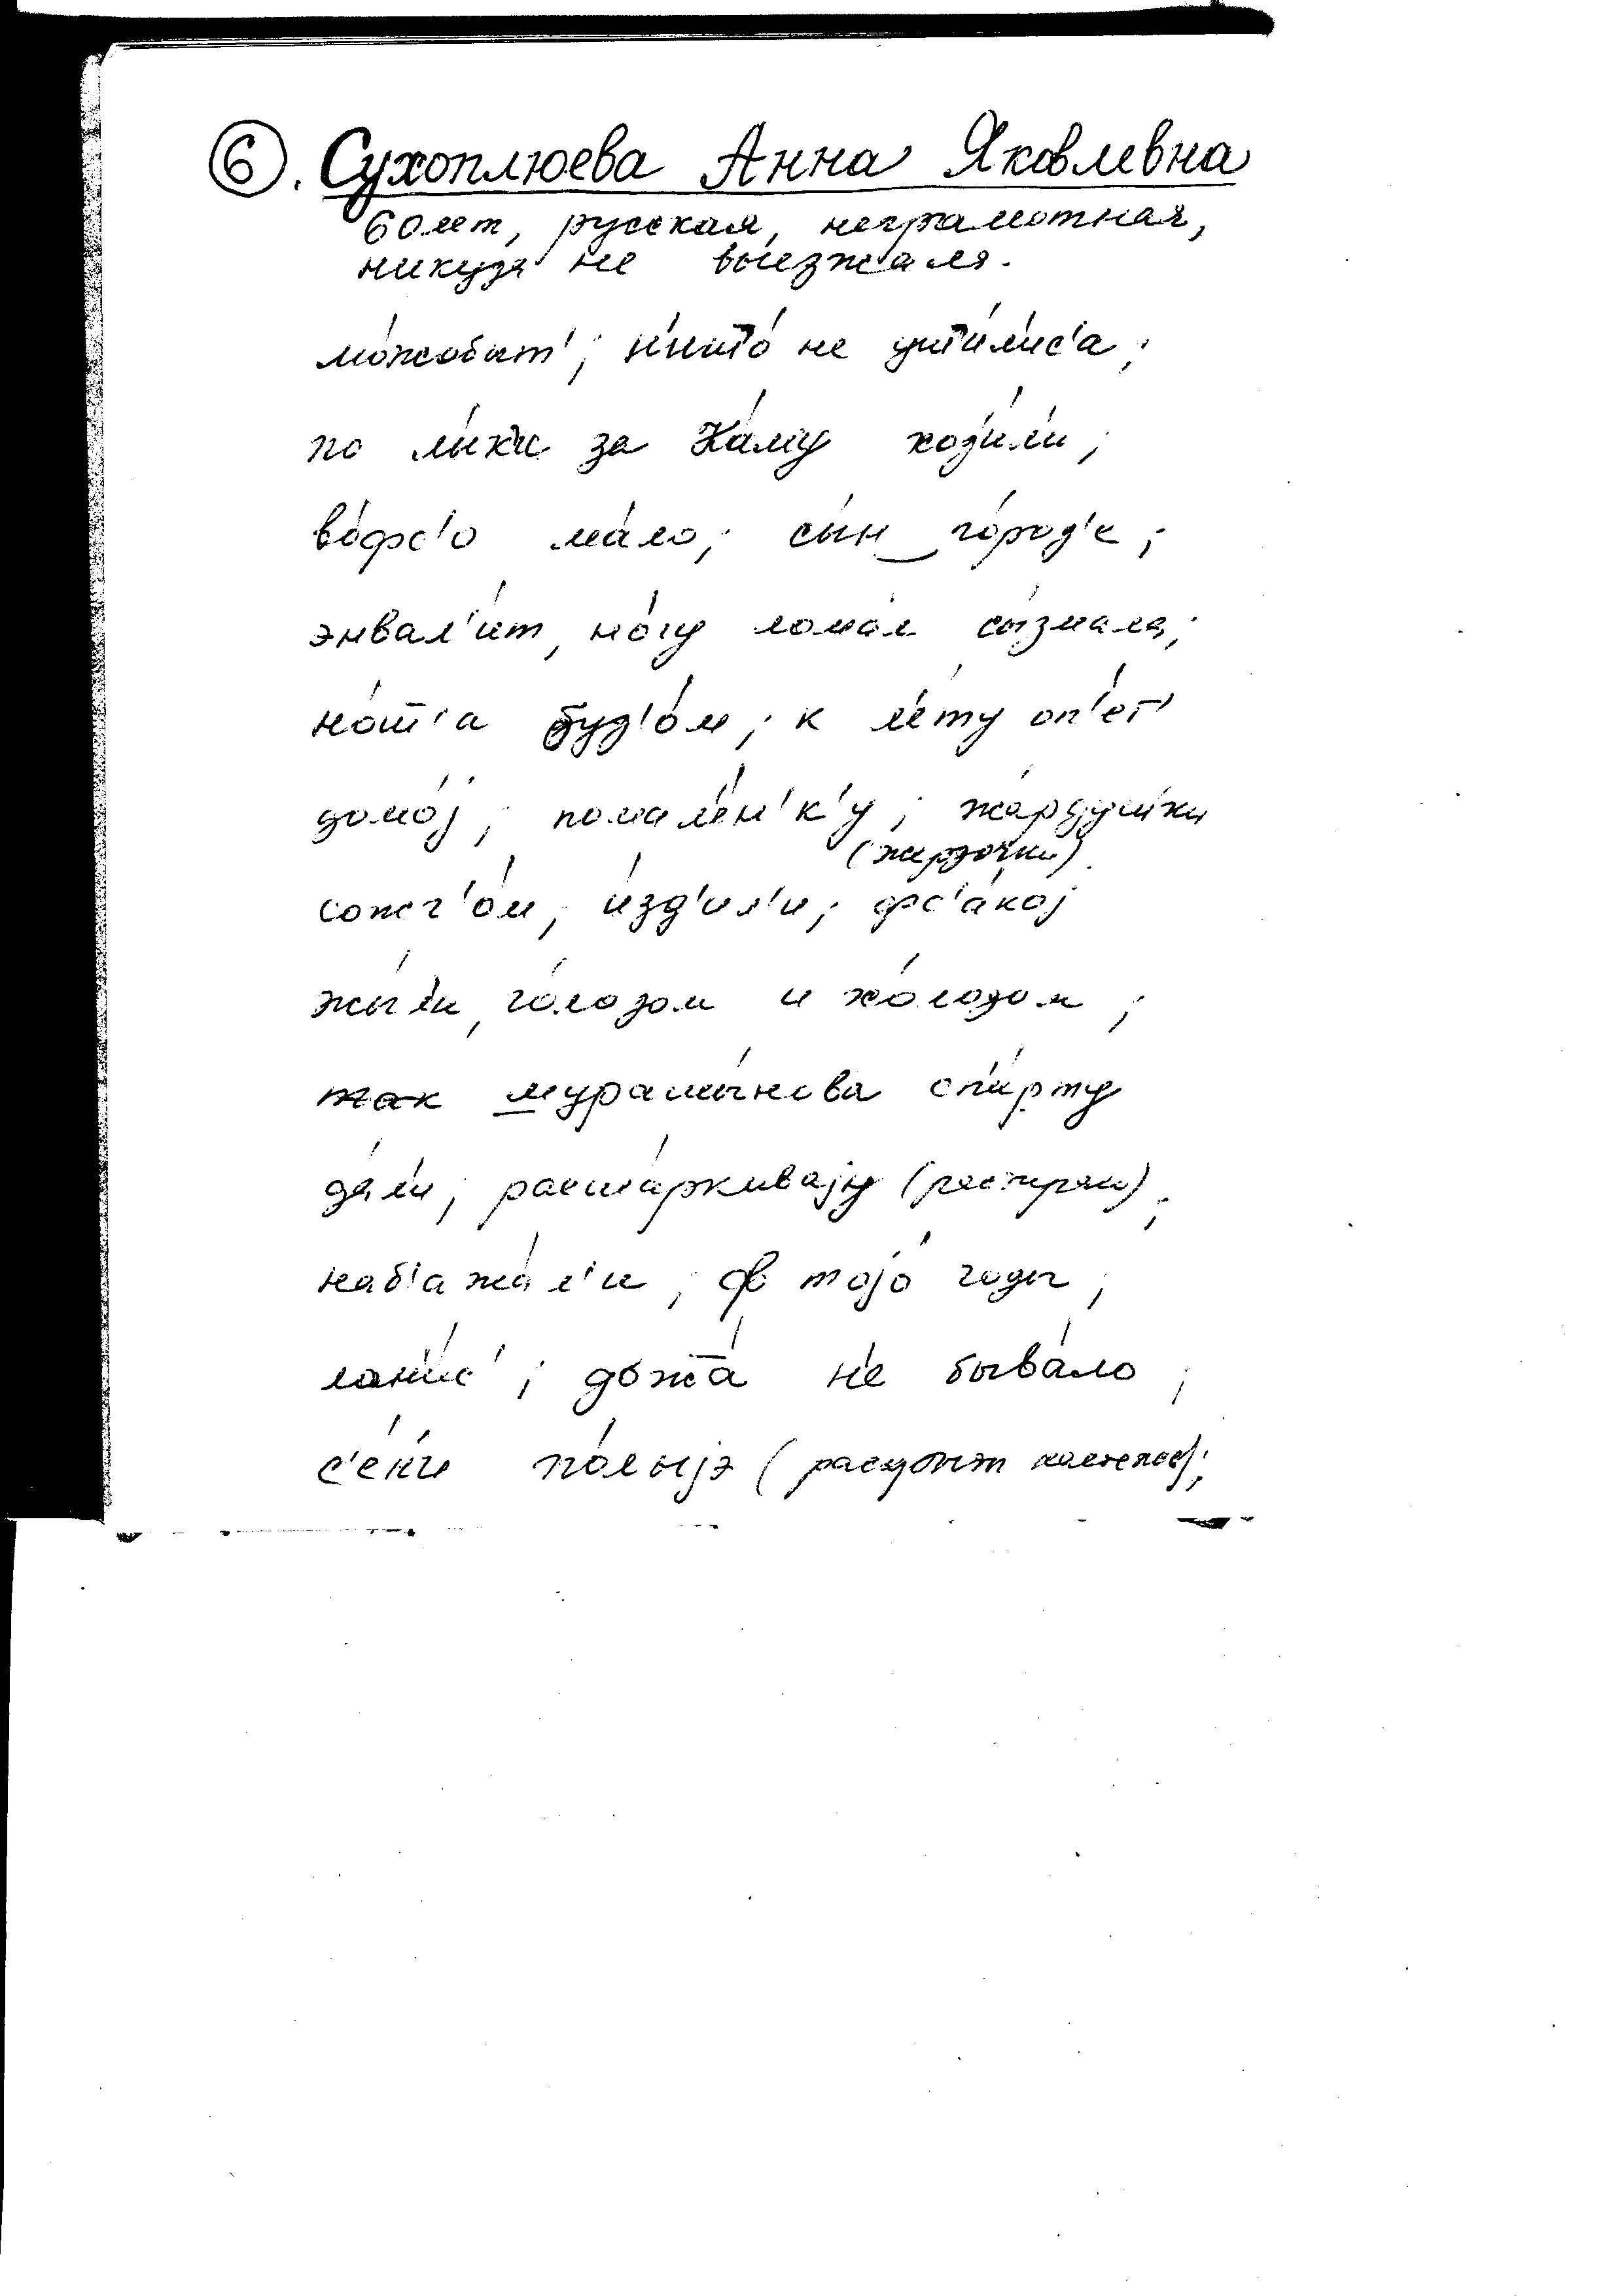 6. Сухоплюева Анна Яковлевна
60 лет, русская, неграмотная,
никуда не выезжала.
мо́жобит'; не уш'и́лис'а;
по лы́ки за Ка́му ход'и́л'и;
во́фс'о ма́ло; сы́н го́род'е;
энвал'и́т, но́гу лома́л сы́змала;
буд'о́м; к л'е́ту оп'е́т'
домо́j; помал'е́н'к'у; жа́рдушки
(жардочки)
сожг'о́м; и́зд'ил'и; фс'а́коj
жы́л'и, го́лодом и хо́лодом;
так мурашы́нова спи́рту
да́л'и; расша́ркиваjу (растираю);
наб'ажа́л'и; ф тоjо́ годы;
лони́с'; дожа́ н'е быва́ло;
с'е́ни по́лыjэ